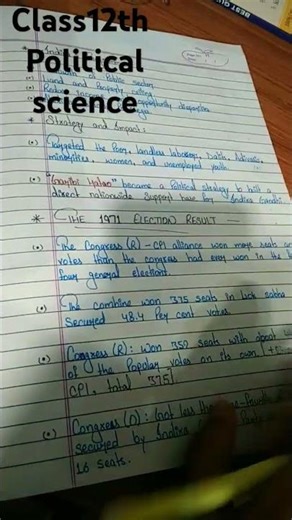 Class12th
Political
science
BEST QU
* Indi
(•) of Public Sector
(•) Land and Property ceiling
(•) opportunity disparities
* Strategy and Impact:
(•) Targeted the Poor, landless labourers, Dalits, Adivasis,
minorities, women, and unemployed youth
(•) "Garibi Hatao" became a Political strategy to built a
direct nationwide Support base for Indira Gandhi.
* THE 1971 ELECTION RESULT —
(•) The Congress (R) – CPI alliance won more seats and
votes than the congress had ever won in the
four general elections.
(•) The combine won 375 seats in Lok Sabha
Secured 48.4 Per cent votes.
(•) Congress (R): Won 352 seats with about
of the Popular votes on its own.
CPI, total 375).
(•) Congress (O): (not less the one-fourth
secured by Indira
16 seats.